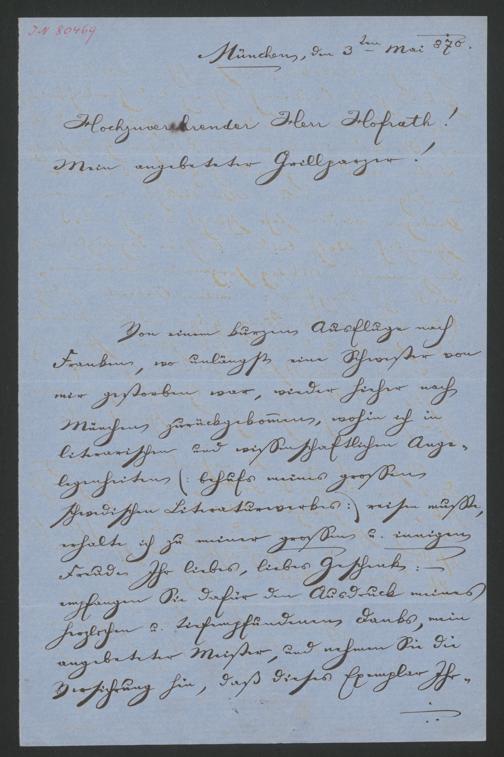 I.N 80469
München, den 3ten Mai 870.
Hochzuverehrender Herr Hofrath!
Mein angebeteter Grillparzer!
Von einem kurzen Ausfluge nach
Franken, wo unlängst eine Schwester von
mir gestorben war, wieder hieher nach
München zurückgekommen, wohin ich in
literarischen und wissenschaftlichen Ange-
legenheiten (: behufs meines grossen
schwedischen Literaturwerkes :) reisen musste,
erhalte ich zu meiner grossen u. innigen
Freude Ihr liebes, liebes Geschenk: —
empfangen Sie dafür den Ausdruck meines
herzlichen u. tiefempfundenen Danks, mein
angebeteter Meister, und nehmen Sie die
Versicherung hin, daß dieses Exemplar Ih-